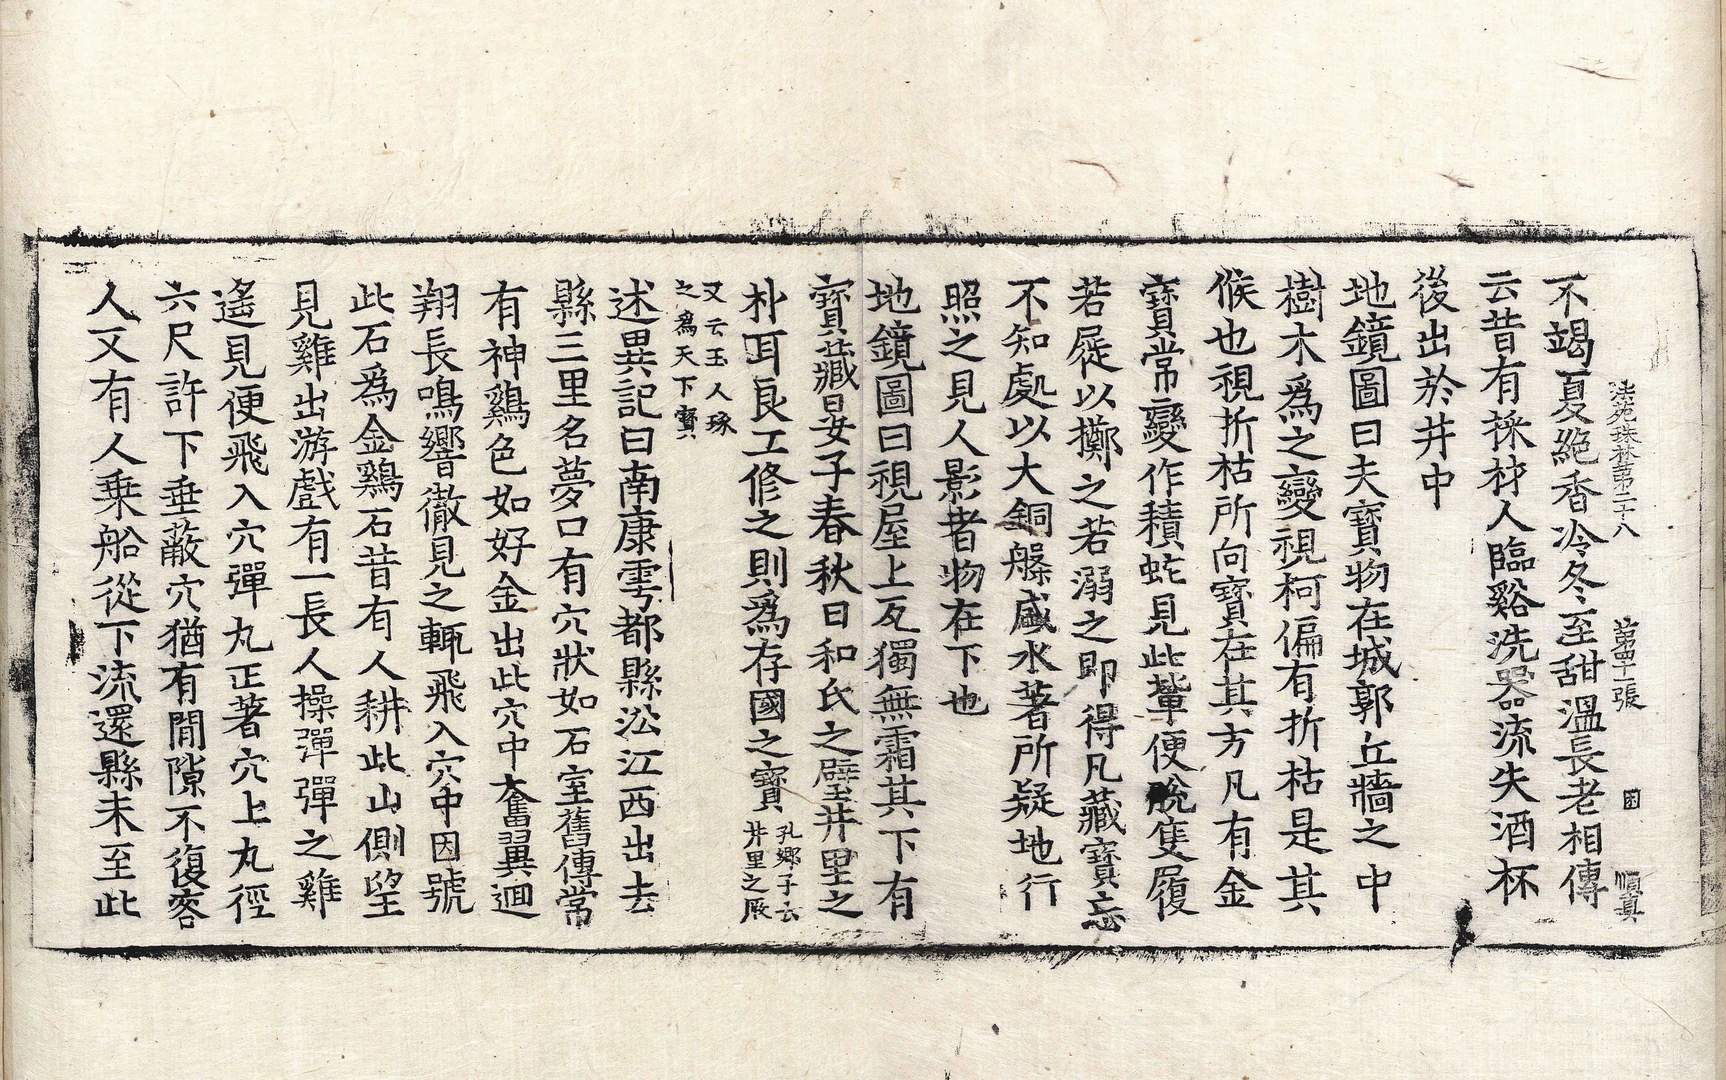 法苑珠林第二十八　第四十張　困　順真
不竭夏絶香冷冬至甜溫長老相傳
云昔有採材人臨谿洗器流失酒杯
後出於井中
地鏡圖曰夫寶物在城郭丘牆之中
樹木爲之變視柯偏有折枯是其
候也視折枯所向寶在其方凡有金
寶常變作積蛇見此輩便脫隻履
若屣以擲之若溺之即得凡藏寶忘
不知處以大銅槃盛水著所疑地行
照之見人影者物在下也
地鏡圖曰視屋上瓦獨無霜其下有
寶藏晏子春秋曰和氏之璧井里之
朴耳良工修之則爲存國之寶孔鄉子云井里之厥
又云玉人琢之爲天下寶
述異記曰南康雩都縣沿江西出去
縣三里名夢口有穴狀如石室舊傳常
有神鷄色如好金出此穴中奮翼迴
翔長鳴響徹見之輒飛入穴中因號
此石爲金鷄石昔有人耕此山側望
見雞出游戲有一長人操彈彈之雞
遙見便飛入穴彈丸正著穴上丸徑
六尺許下垂蔽穴猶有閒隙不復容
人又有人乗船從下流還縣未至此